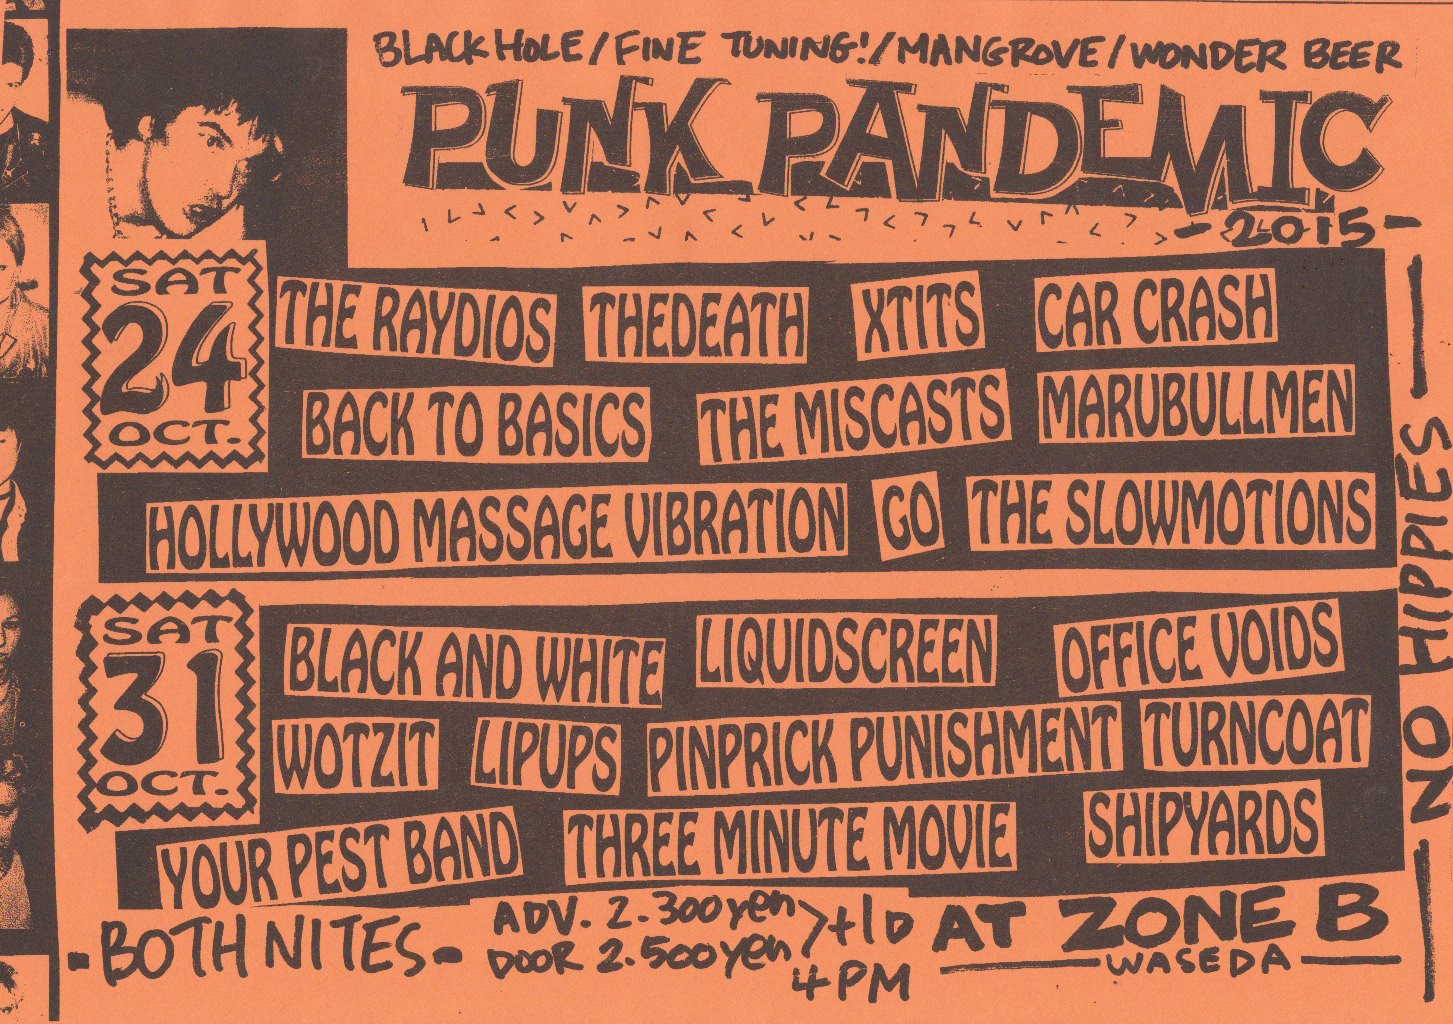 BLACK HOLE/FINE TUNING!/MANGROVE/WONDER BEER
PUNK PANDEMIC
-2015-
SAT
24
OCT.
THE RAYDIOS THEDEATH XTITS CAR CRASH
BACK TO BASICS THE MISCASTS MARUBULLMEN
HOLLYWOOD MASSAGE VIBRATION GO THE SLOWMOTIONS
SAT
31
OCT.
BLACK AND WHITE LIQUIDSCREEN OFFICE VOIDS
WOTZIT LIPUPS PINPRICK PUNISHMENT TURNCOAT
YOUR PEST BAND THREE MINUTE MOVIE SHIPYARDS
-BOTH NITES-
ADV. 2.300yen
DOOR 2.500yen
>+1D
4PM
AT ZONE B
WASEDA
NO HIPPIES